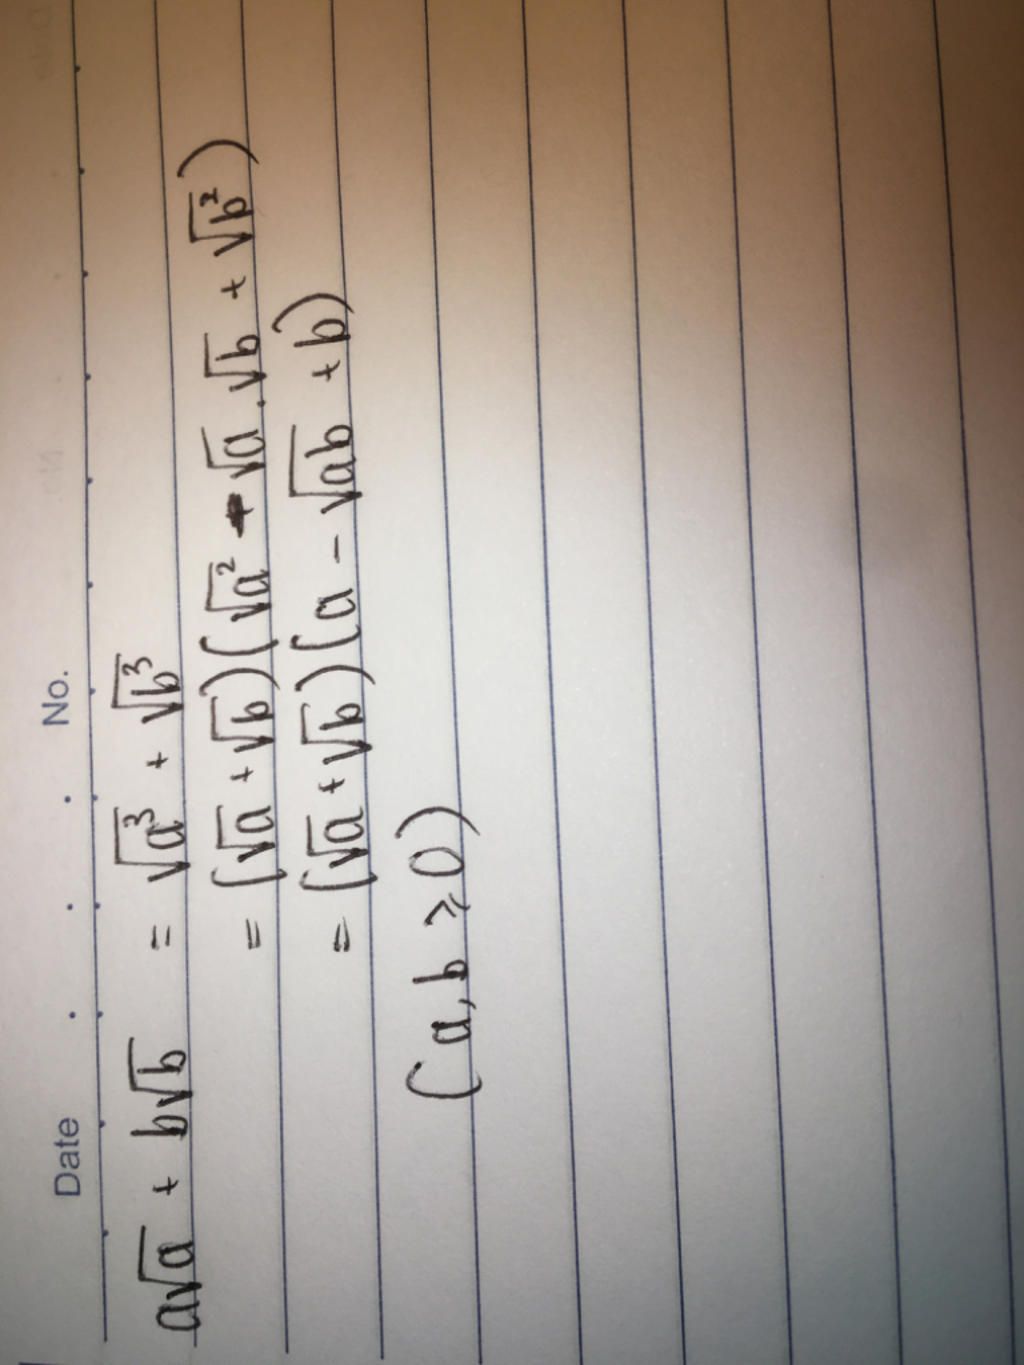 Date . . No.
a√a + b√b = √a³ + √b³
= (√a + √b)(√a² - √a.√b + √b²)
= (√a + √b)(a - √ab + b)
(a, b ⩾ 0)